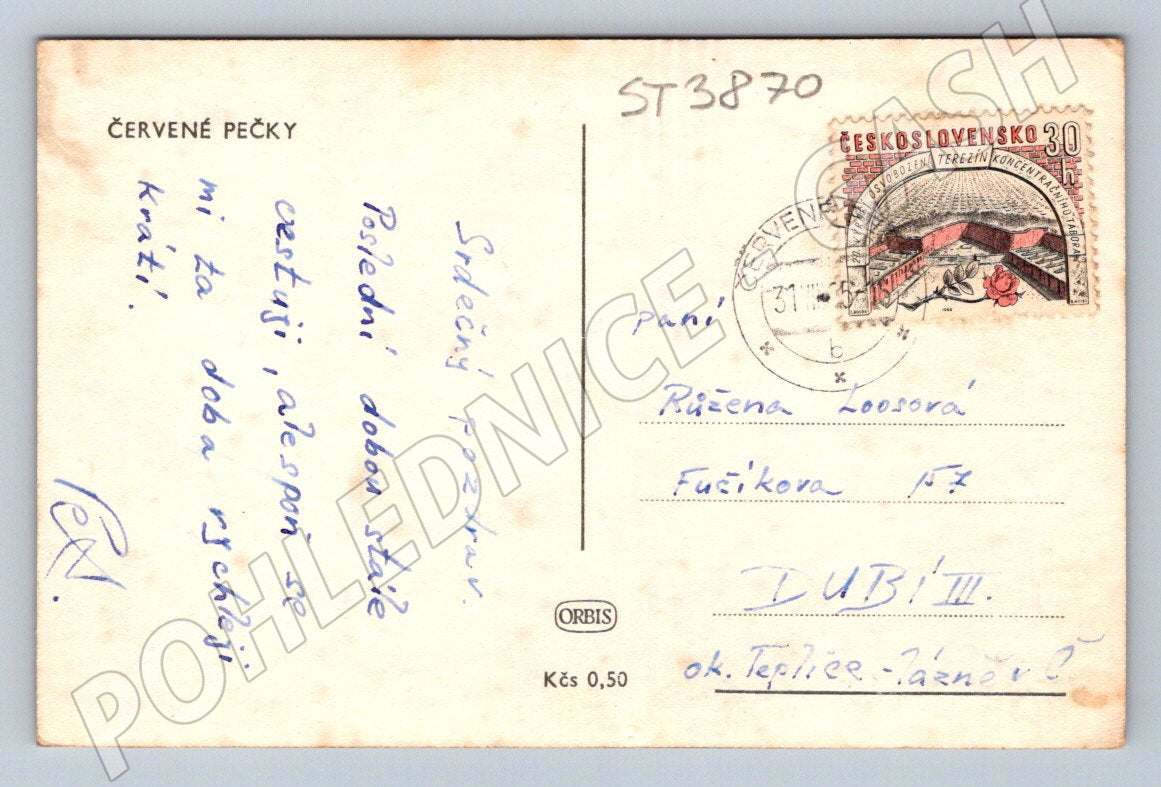 ST3870
ČERVENÉ PEČKY
Srdečný pozdrav.
Poslední dobou stále
cestuji, alespoň se
mi ta doba rychleji
krátí.
ČESKOSLOVENSKO 30
h
20. VÝROČÍ OSVOBOZENÍ TEREZÍN KONCENTRAČNÍHO TÁBORA
1965
ČERVENÉ
31.VII.65
b
paní
Růžena Loosová
Fučíkova 157
DUBÍ III.
ok. Teplice-lázně v Č
ORBIS
Kčs 0,50
POHLEDNICE CASH